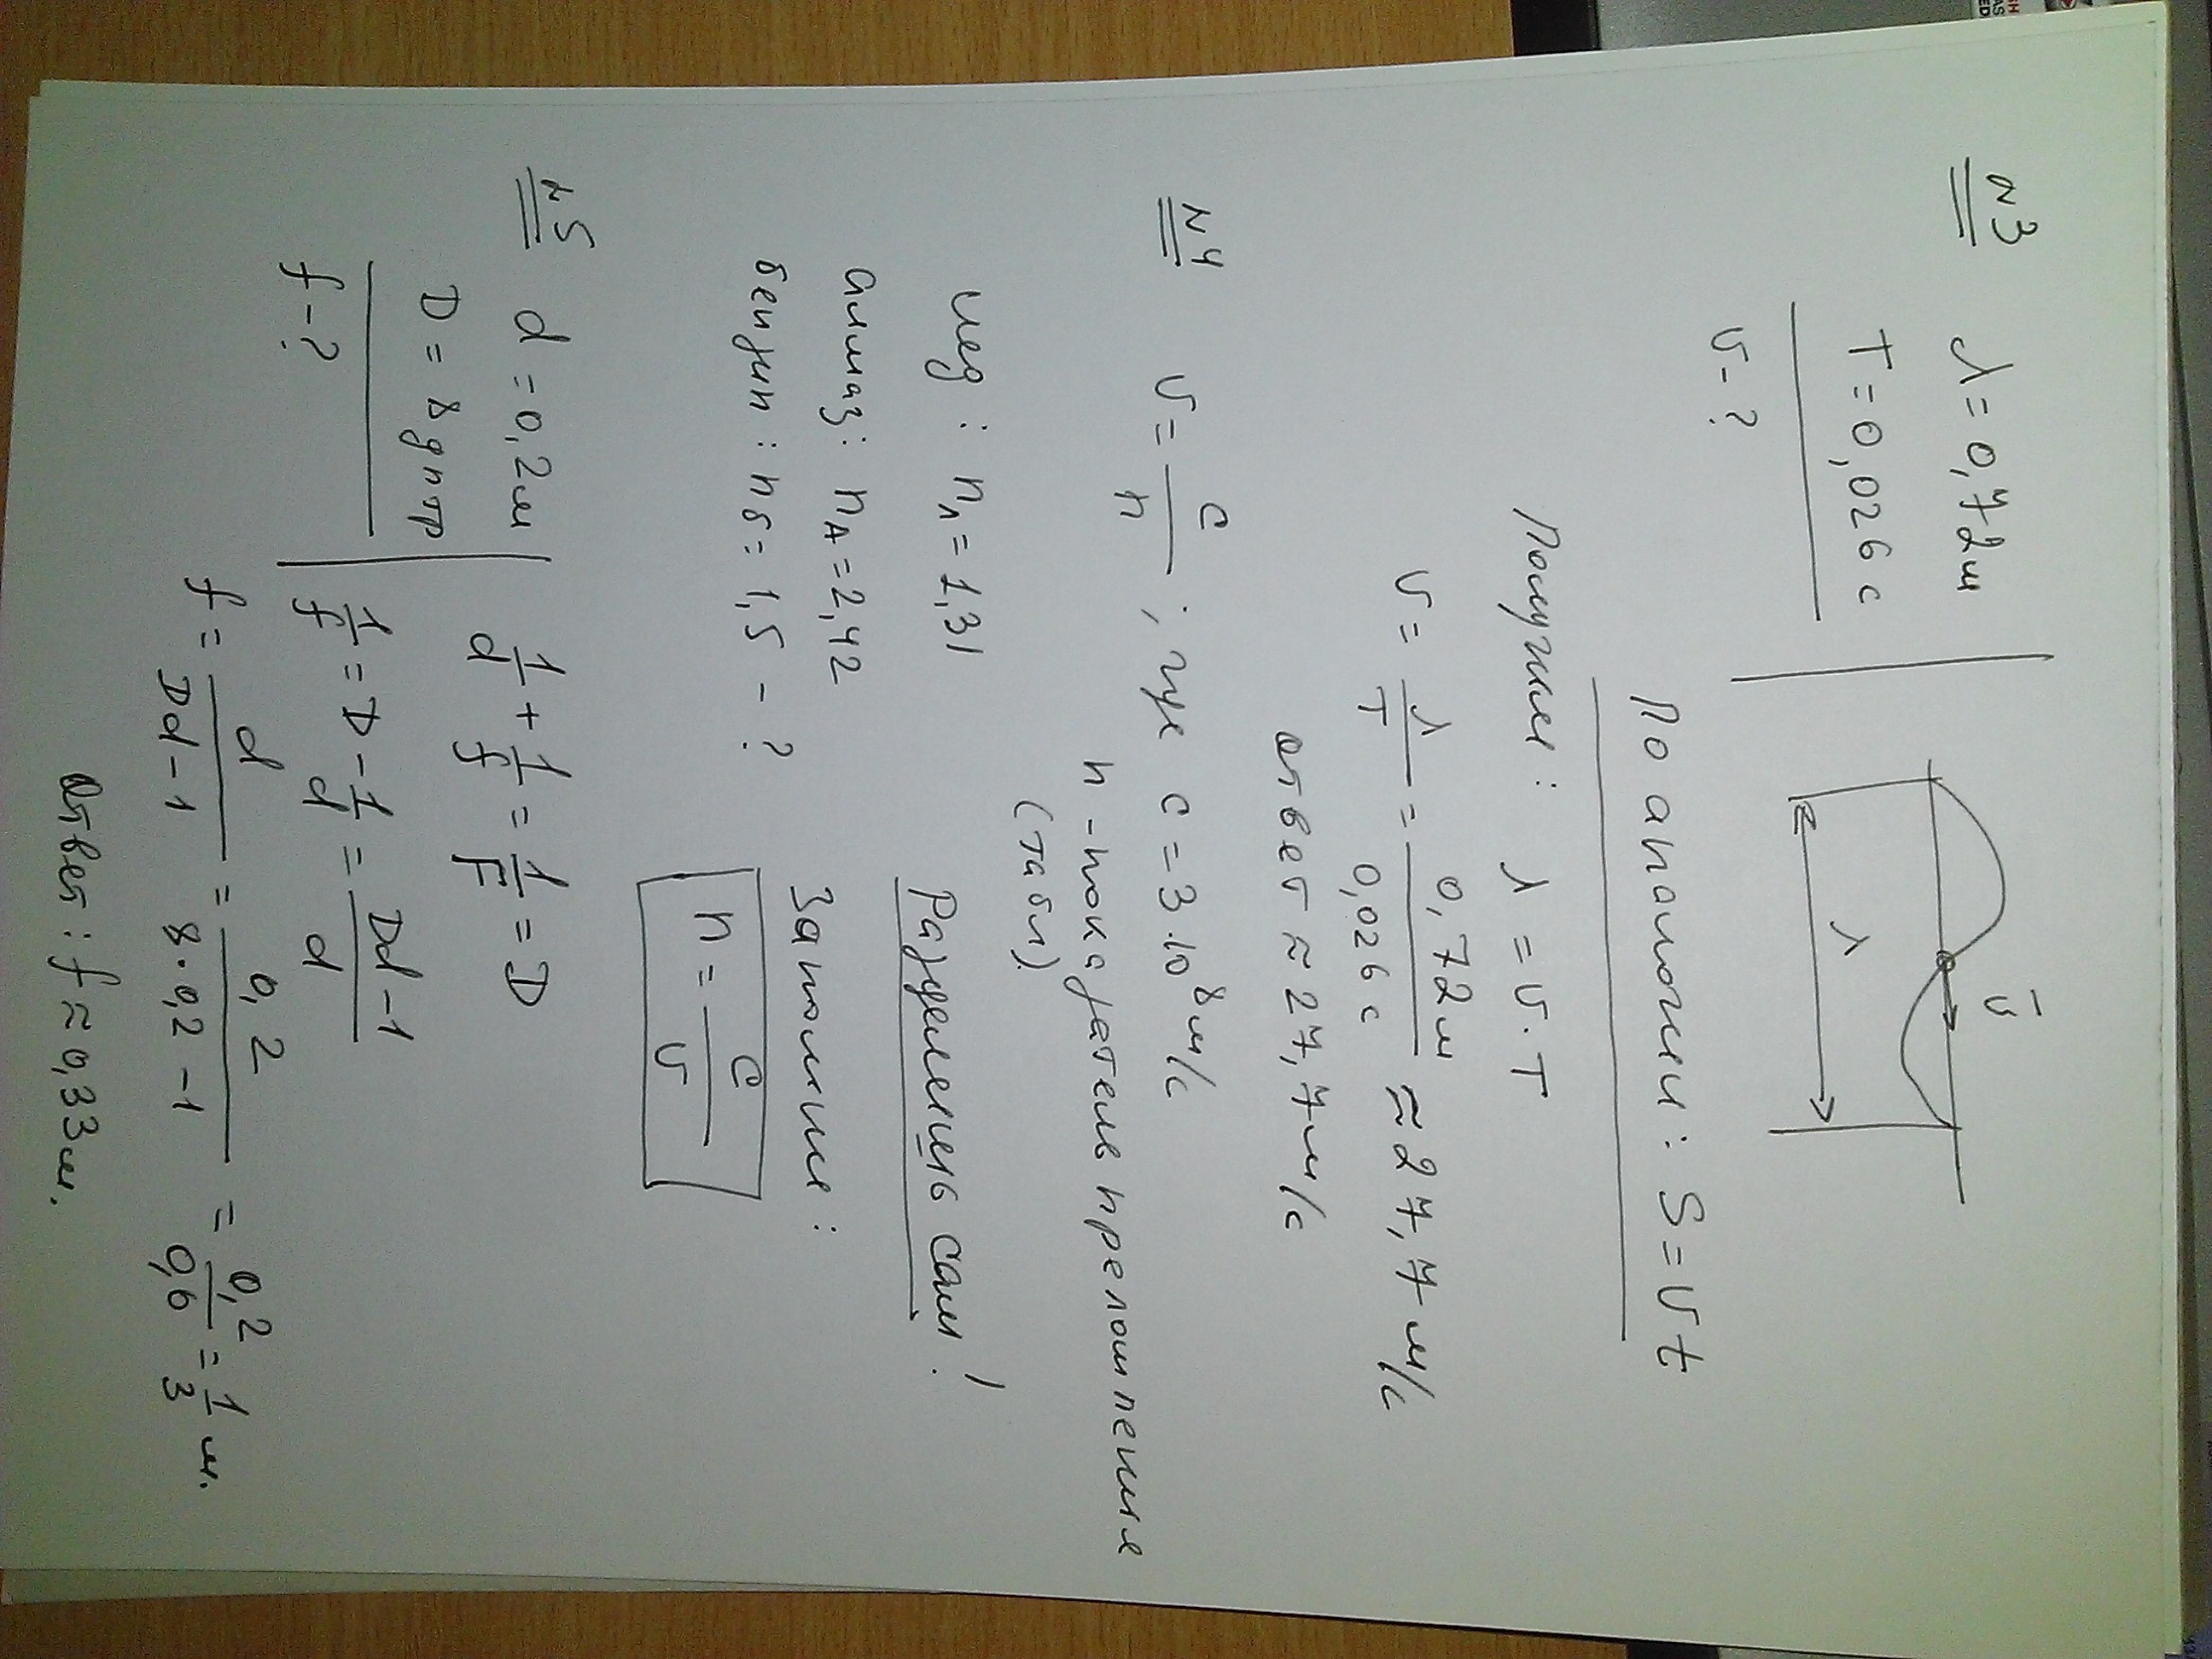 №3
λ = 0,72м
T = 0,026 с
υ - ?
λ
ῡ
По аналогии: S = υt
Получим: λ = υ · T
υ = λ/T = 0,72м/0,026 с ≈ 27,7 м/с
ответ ≈ 27,7 м/с
№4
υ = c/n ; где c = 3·10⁸ м/с
n - показатель преломления
(табл).
лед : nл = 1,31
алмаз: nА = 2,42
бензин : nб = 1,5 - ?
Разделишь сам!
Запомни :
n = c/υ
№5
d = 0,2м
D = 8 дптр
f - ?
1/d + 1/f = 1/F = D
1/f = D - 1/d = Dd - 1/d
f = d/Dd - 1 = 0,2/8 · 0,2 - 1 = 0,2/0,6 = 1/3 м.
Ответ : f ≈ 0,33м.